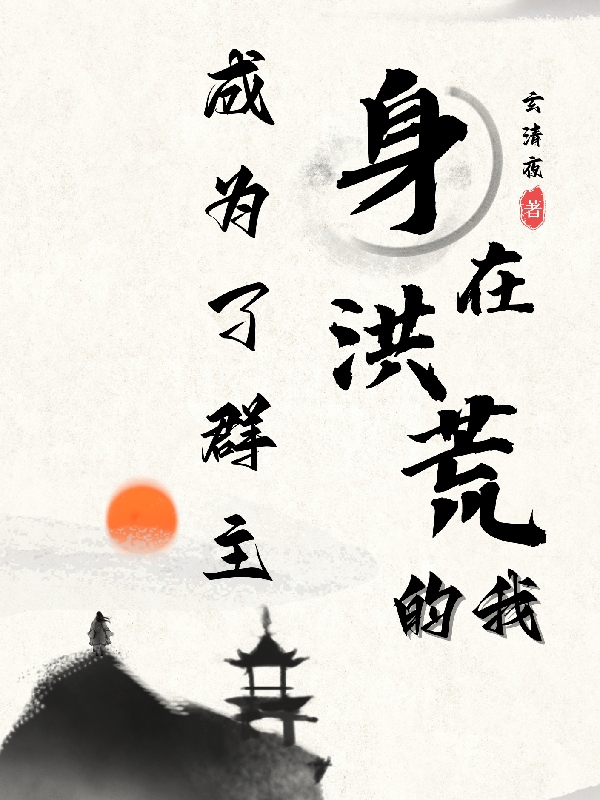 玄清夜 著
身在洪荒的我
成为了群主